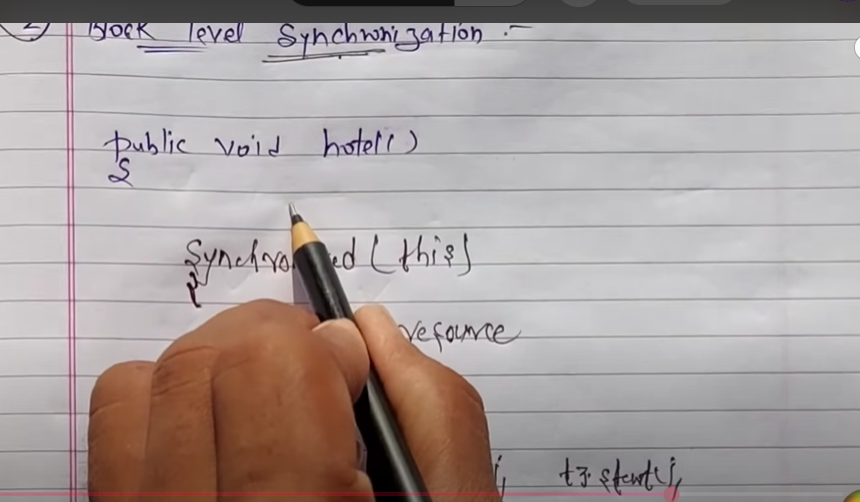 2 Block level Synchronization :-
public void hotel()
{
(this)
{
resource
t3. start();